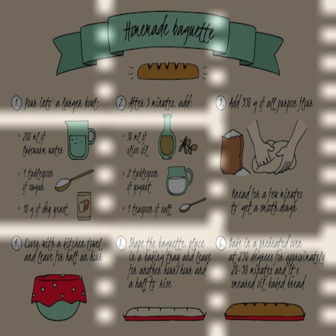 Homemade baguette
1. Pour into a larger bowl:
• 200 ml of
lukewarm water
• 1 tablespoon
of sugar
• 10 g of dry yeast
2. After 5 minutes, add:
• 50 ml of
olive oil
• 2 tablespoons
of yogurt
• 1 teaspoon of salt
3. Add 350 g of all purpose flour
Knead for a few minutes
to get a smooth dough
4. Cover with a kitchen towel
and leave for half an hour
5. Shape the baguette, place
in a baking tray and leave
for another hour, hour and
a half to rise
6. Bake in a preheated oven
at 230 degrees for approximately
20-30 minutes and it's
smeared oil, baked bread